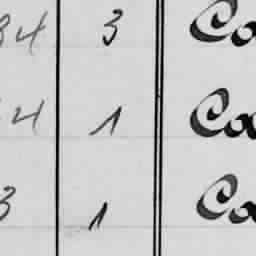 84 3 Co
4 1 Co
3 1 Co